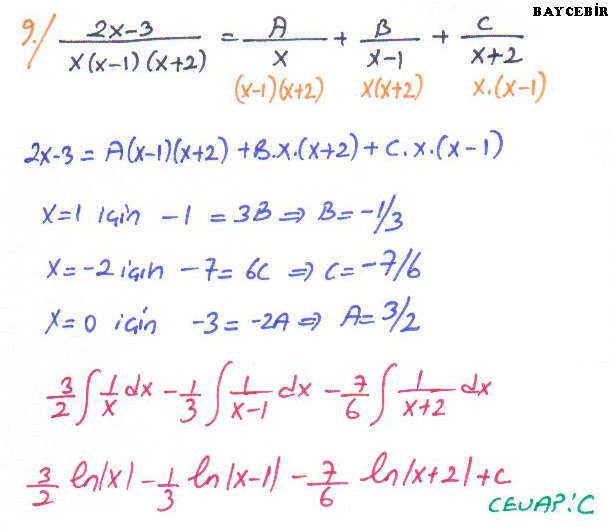 BAYCEBİR
9./ (2x-3)/(x(x-1)(x+2)) = A/x + B/(x-1) + C/(x+2)
(x-1)(x+2) x(x+2) x.(x-1)
2x-3 = A(x-1)(x+2) + B.x.(x+2) + C.x.(x-1)
x=1 için -1 = 3B ⇒ B=-1/3
x=-2 için -7= 6C ⇒ C=-7/6
x=0 için -3=-2A ⇒ A=3/2
3/2 ∫ 1/x dx - 1/3 ∫ 1/(x-1) dx - 7/6 ∫ 1/(x+2) dx
3/2 ln|x| - 1/3 ln|x-1| - 7/6 ln|x+2| + c
CEVAP:C